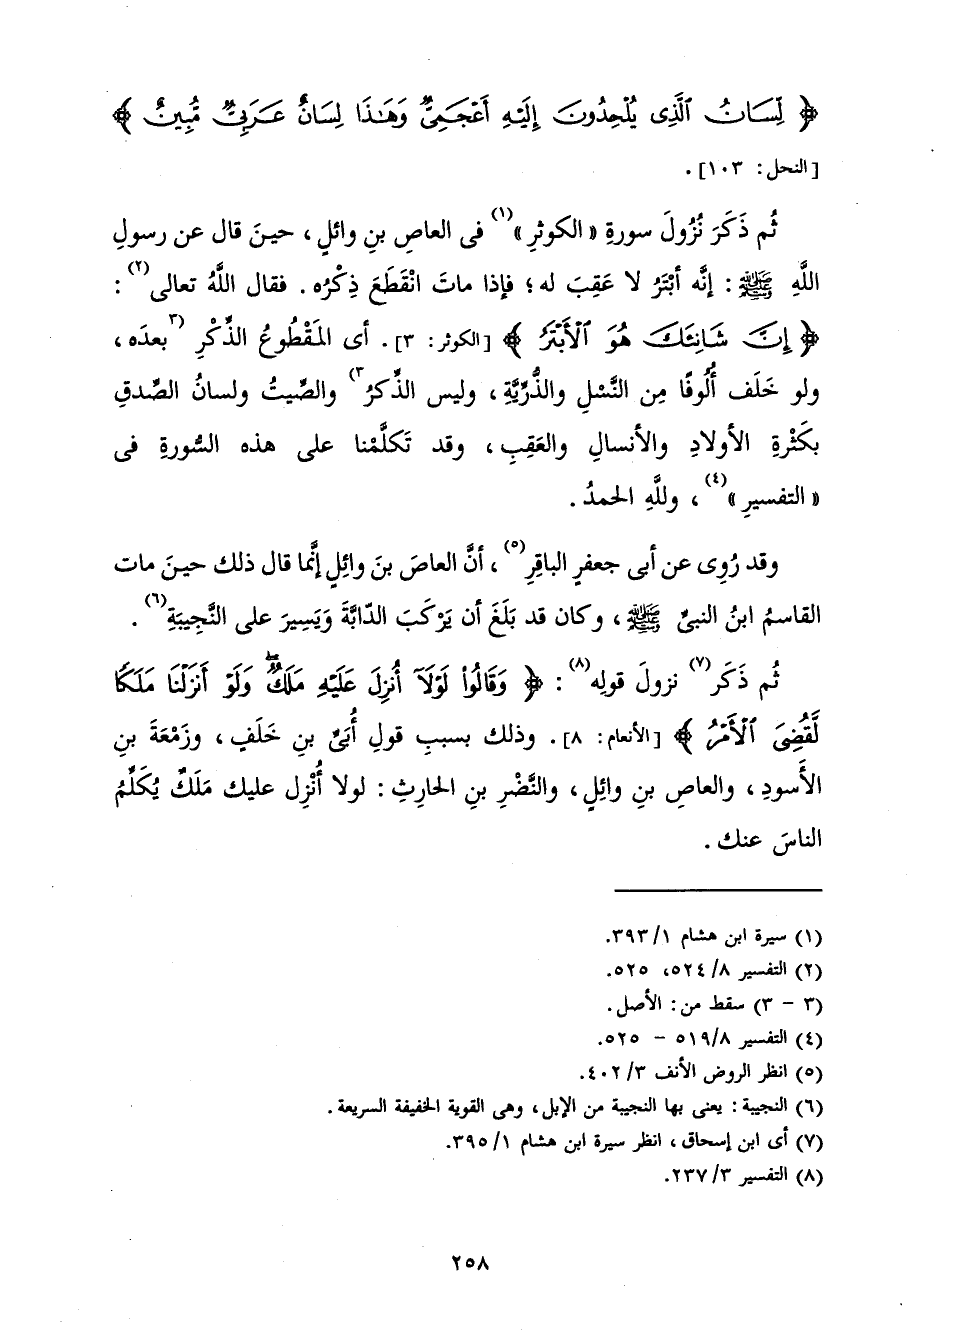 ﴿ لِّسَانُ ٱلَّذِى يُلْحِدُونَ إِلَيْهِ أَعْجَمِىٌّ وَهَٰذَا لِسَانٌ عَرَبِىٌّ مُّبِينٌ ﴾
[النحل: ١٠٣].
ثُم ذَكَرَ نُزُولَ سورةِ «الكوثرِ»(١) فى العاصِ بنِ وائلٍ، حينَ قال عن رسولِ
اللَّهِ ﷺ: إنَّه أبْتَرُ لا عَقِبَ له؛ فإذا ماتَ انْقَطَعَ ذِكْرُه. فقال اللَّهُ تعالى(٢):
﴿ إِنَّ شَانِئَكَ هُوَ ٱلْأَبْتَرُ ﴾ [الكوثر: ٣]. أى المَقْطُوعُ الذِّكْرِ (٣بعدَه،
ولو خَلَف أُلُوفًا مِن النَّسْلِ والذُّرِّيَّةِ، وليس الذِّكرُ٣) والصِّيتُ ولسانُ الصِّدقِ
بكَثْرةِ الأولادِ والأنسالِ والعَقِبِ، وقد تَكلَّمْنا على هذه السُّورةِ فى
«التفسيرِ»(٤)، وللَّهِ الحمدُ.
وقد رُوِى عن أبى جعفرٍ الباقرِ(٥)، أنَّ العاصَ بنَ وائلٍ إنَّما قال ذلك حينَ مات
القاسمُ ابنُ النبىِّ ﷺ، وكان قد بَلَغَ أن يَرْكَبَ الدّابَّةَ وَيَسِيرَ على النَّجِيبَةِ(٦).
ثُم ذَكَر(٧) نزولَ قولِه(٨): ﴿ وَقَالُوا۟ لَوْلَآ أُنزِلَ عَلَيْهِ مَلَكٌ ۖ وَلَوْ أَنزَلْنَا مَلَكًا
لَّقُضِىَ ٱلْأَمْرُ ﴾ [الأنعام: ٨]. وذلك بسببِ قولِ أُبَىِّ بنِ خَلَفٍ، وزَمْعَةَ بنِ
الأَسودِ، والعاصِ بنِ وائلٍ، والنَّضْرِ بنِ الحارثِ: لولا أُنْزِل عليك مَلَكٌ يُكَلِّمُ
الناسَ عنك.
(١) سيرة ابن هشام ٣٩٣/١.
(٢) التفسير ٥٢٤/٨، ٥٢٥.
(٣ - ٣) سقط من: الأصل.
(٤) التفسير ٥١٩/٨ - ٥٢٥.
(٥) انظر الروض الأنف ٤٠٢/٣.
(٦) النجيبة: يعنى بها النجيبة من الإبل، وهى القوية الخفيفة السريعة.
(٧) أى ابن إسحاق، انظر سيرة ابن هشام ٣٩٥/١.
(٨) التفسير ٢٣٧/٣.
٢٥٨